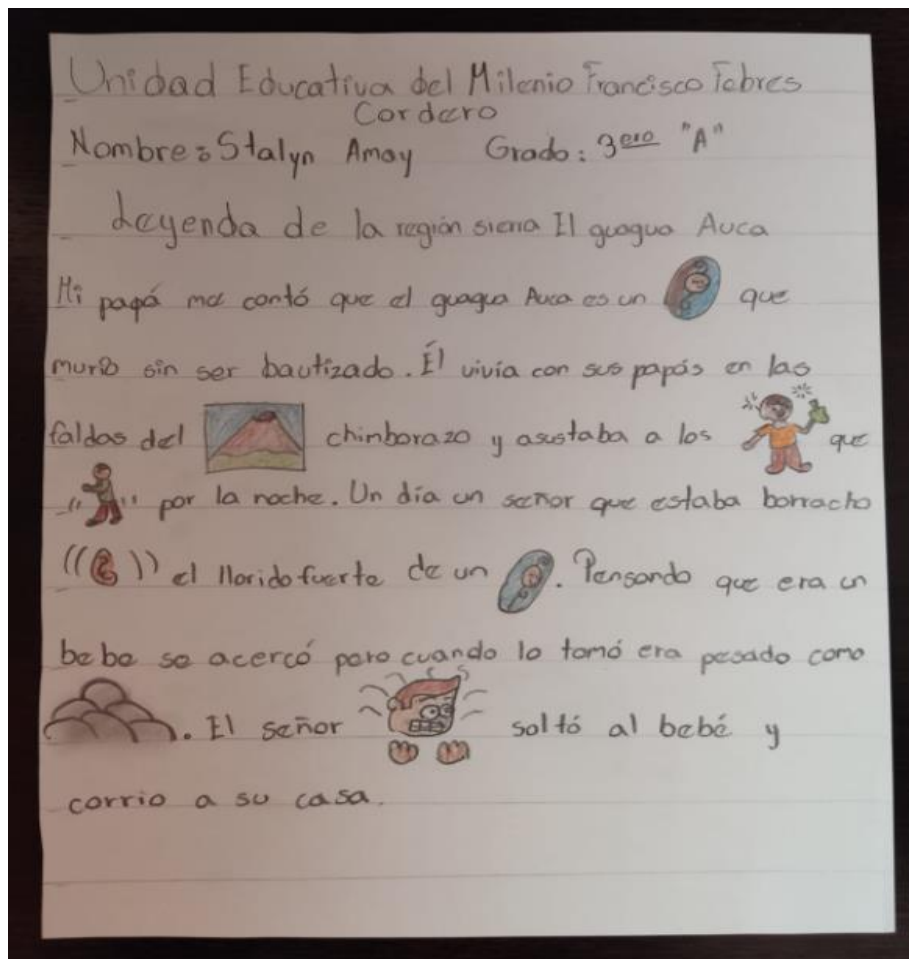 Unidad Educativa del Milenio Francisco Febres
Cordero
Nombre: Stalyn Amay Grado: 3ero "A"
Leyenda de la región sierra El guagua Auca
Mi papá me contó que el guagua Auca es un que
murió sin ser bautizado. Él vivía con sus papás en las
faldas del chimborazo y asustaba a los que
por la noche. Un día un señor que estaba borracho
(( )) el llorido fuerte de un . Pensando que era un
bebe se acercó pero cuando lo tomó era pesado como
. El señor soltó al bebé y
corrio a su casa.